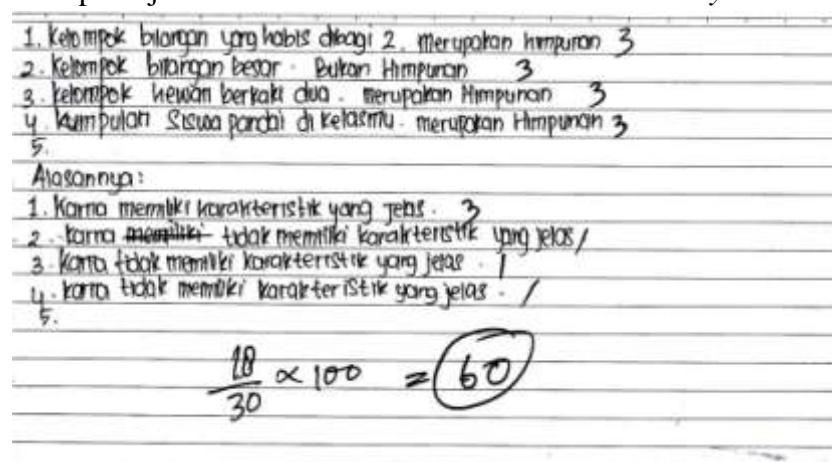 1. Kelompok bilangan yang habis dibagi 2. merupakan himpunan 3
2. Kelompok bilangan besar. Bukan Himpunan 3
3. Kelompok hewan berkaki dua. merupakan Himpunan 3
4. kumpulan Siswa pandai di kelasmu. merupakan Himpunan 3
5.
Alasannya:
1. Karna memiliki karakteristik yang jelas. 3
2. karna memiliki tidak memiliki karakteristik yang jelas /
3. Karna tidak memiliki karakteristik yang jelas. 1
4. karna tidak memiliki karakteristik yang jelas. /
5.
18
30
x 100 = 60